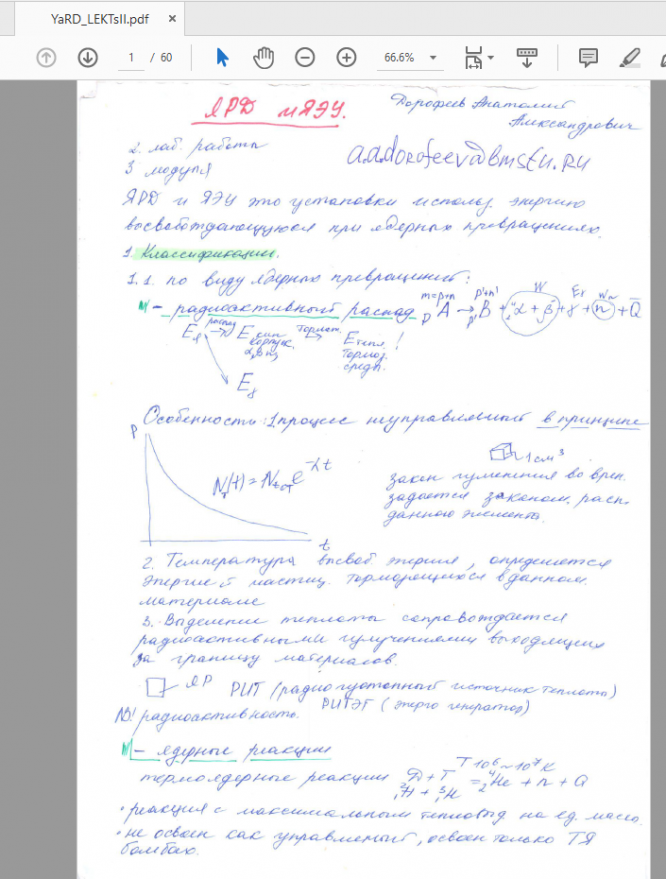 YaRD_LEKTsII.pdf
1 / 60
66.6%
ЯРД и ЯЭУ.
Дорофеев Анатолий
Александрович
2. лаб. работы
3 модуля
a.adorofeev@bmstu.ru
ЯРД и ЯЭУ это установки использ. энергию
высвобождающуюся при ядерных превращениях.
1. Классификации.
1.1. по виду ядерных превращений:
- радиоактивный распад
m=p+n p'+n' W Eγ Wn
A → B + (α + β) + γ + (n) + Q̄
распад тормож.
E кин. корпуск. E тепл. !
тормоз. среды
Eγ
Особенность: 1 процесс неуправляемый в принципе
P
N(t) = N e^-λt
t
1 см³
закон излучения во врем.
задается законом. расп.
данного элемента.
2. Температура высвоб. энергия, определяется
энергией частиц. тормозящихся в данном
материале
3. Выделение теплоты сопровождается
радиоактивными излучениями выходящих
за границу материалов.
ЯР РИТ (радиоизотопный источник теплоты)
РИТЭГ (энерго генератор)
NB! радиоактивность.
- ядерные реакции
T 10⁶ ~ 10⁷ К
термоядерные реакции D + T
²₁H + ³₁H = ⁴₂He + n + Q
• реакция с максимальным тепловыд на ед. массы.
• не освоен как управляемый, освоен только ТЯ
бомбах.